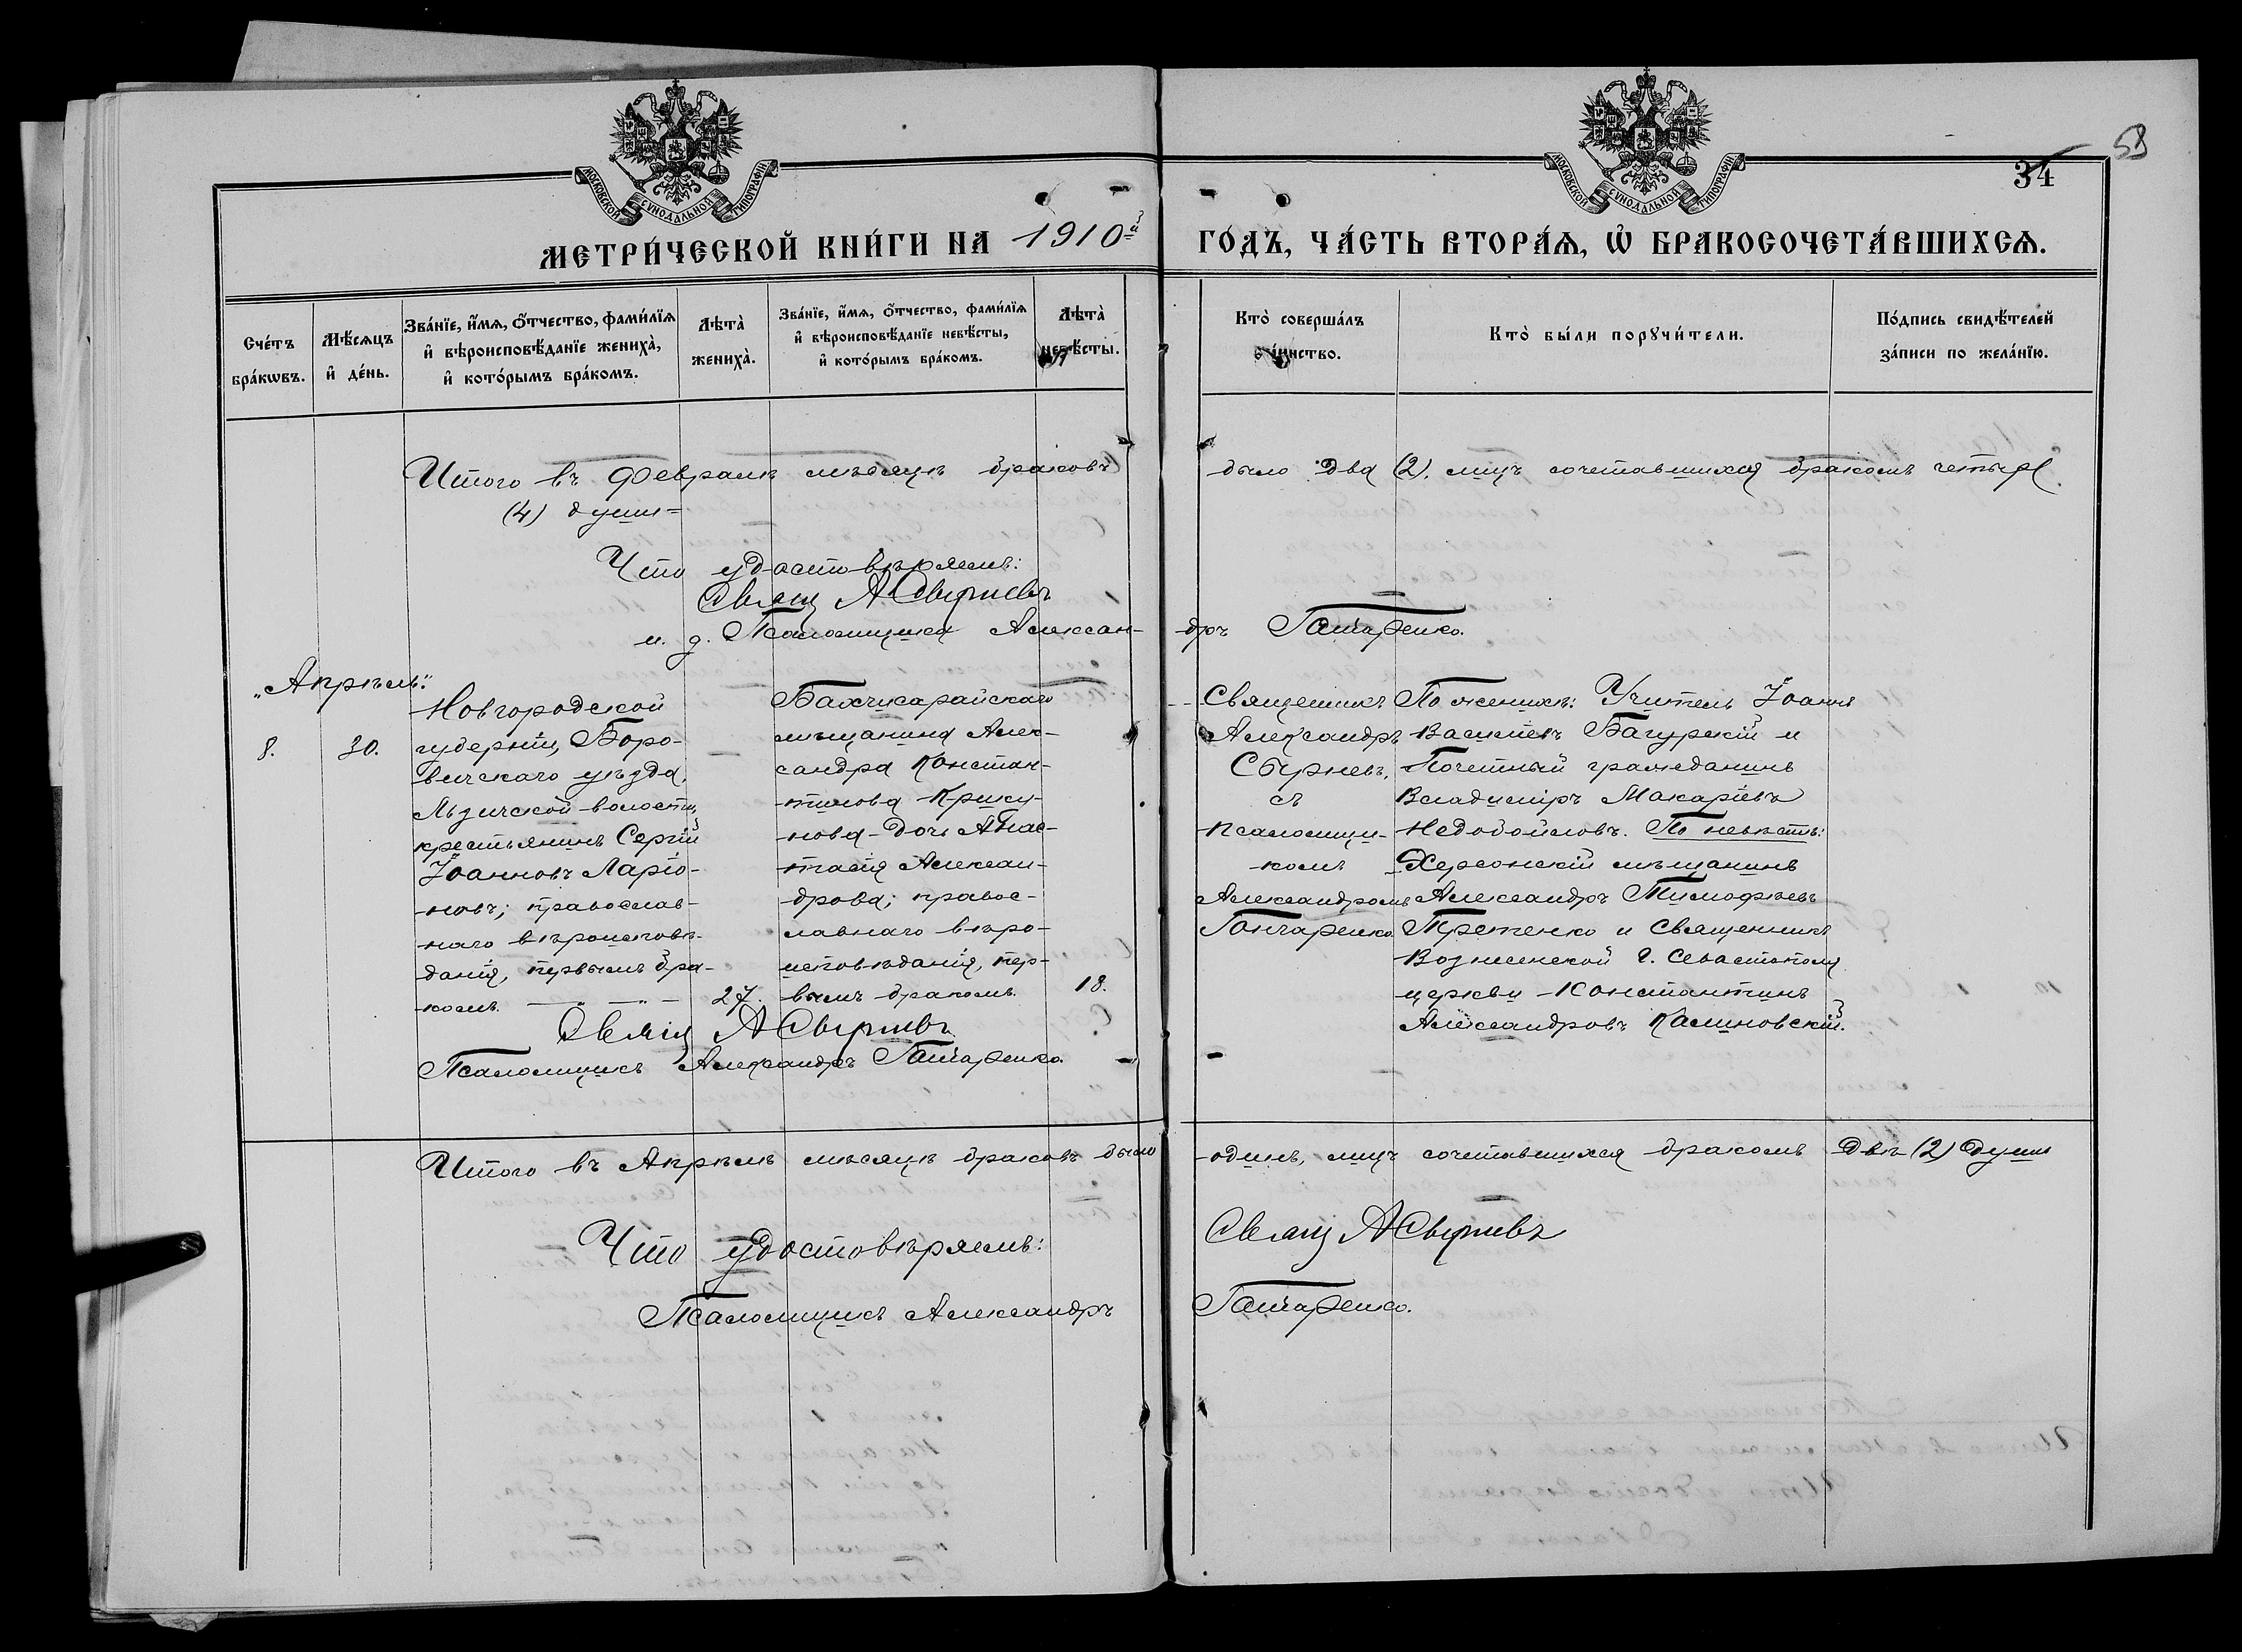 МОСКОВСКОЙ СѴНОДАЛЬНОЙ ТИПОГРАФІИ
МОСКОВСКОЙ СѴНОДАЛЬНОЙ ТИПОГРАФІИ
34
МЕТРИ́ЧЕСКОЙ КНИ́ГИ НА 1910й ГО́ДЪ, ЧА́СТЬ ВТОРА́Я, Ѡ҆ БРАКОСОЧЕТА́ВШИХСЯ.
Сче́тъ бра́кѡвъ.
Мѣ́сяцъ и҆ де́нь.
Зва́нїе, и҆́мя, ѻ҆́тчество, фами́лїя и҆ вѣроисповѣ́данїе жениха̀, и҆ кото́рымъ бра́комъ.
Лѣта̀ жениха̀.
Зва́нїе, и҆́мя, ѻ҆́тчество, фами́лїя и҆ вѣроисповѣ́данїе невѣ́сты, и҆ кото́рымъ бра́комъ.
Лѣта̀ невѣ́сты.
Кто̀ соверша́лъ таинство.
Кто̀ бы́ли порꙋчи́тели.
По́дпись свидѣ́телей за́писи по жела́нїю.
Итого въ Февралѣ мѣсяцѣ браковъ было два (2). лицъ сочетавшихся бракомъ четыре
(4) души=
Что удостовѣряемъ:
Свящ А Свирневъ
и. д. Псаломщика Александръ Гончаренко.
„Апрѣль“
8.
30.
Новгородской
губерніи, Боро-
вичскаго уѣзда,
Льзичской волости,
крестьянинъ Сергій
Іоанновъ Ларіо-
новъ; православ-
наго вѣроисповѣ-
данія, первымъ бра-
комъ. — „ — „ —
27.
Бахчисарайскаго
мѣщанина Алек-
сандра Констан-
тинова
нова дочь Анас-
тасія Алексан-
дрова; правос-
лавнаго вѣро-
исповѣданія, пер-
вымъ бракомъ.
18.
Священникъ
Александръ
съ
псаломщи-
комъ
Александромъ
Гончаренко.
По женихѣ: Учитель Іоаннъ
Васильевъ Багурскій и
Почетный гражданинъ
Владиміръ Макаріевъ
Недобойловъ. По невѣстѣ:
Херсонскій мѣщанинъ
Александръ Тимофѣевъ
и Священникъ
Вознесенской г. Севастополя
церкви Константинъ
Александровъ Калиновскій.
Псаломщикъ Александръ Гончаренко.
Итого въ Апрѣлѣ мѣсяцѣ браковъ было одинъ, лицъ сочетавшихся бракомъ двѣ (2) души
Что удостовѣряемъ:
Псаломщикъ Александръ Гончаренко.